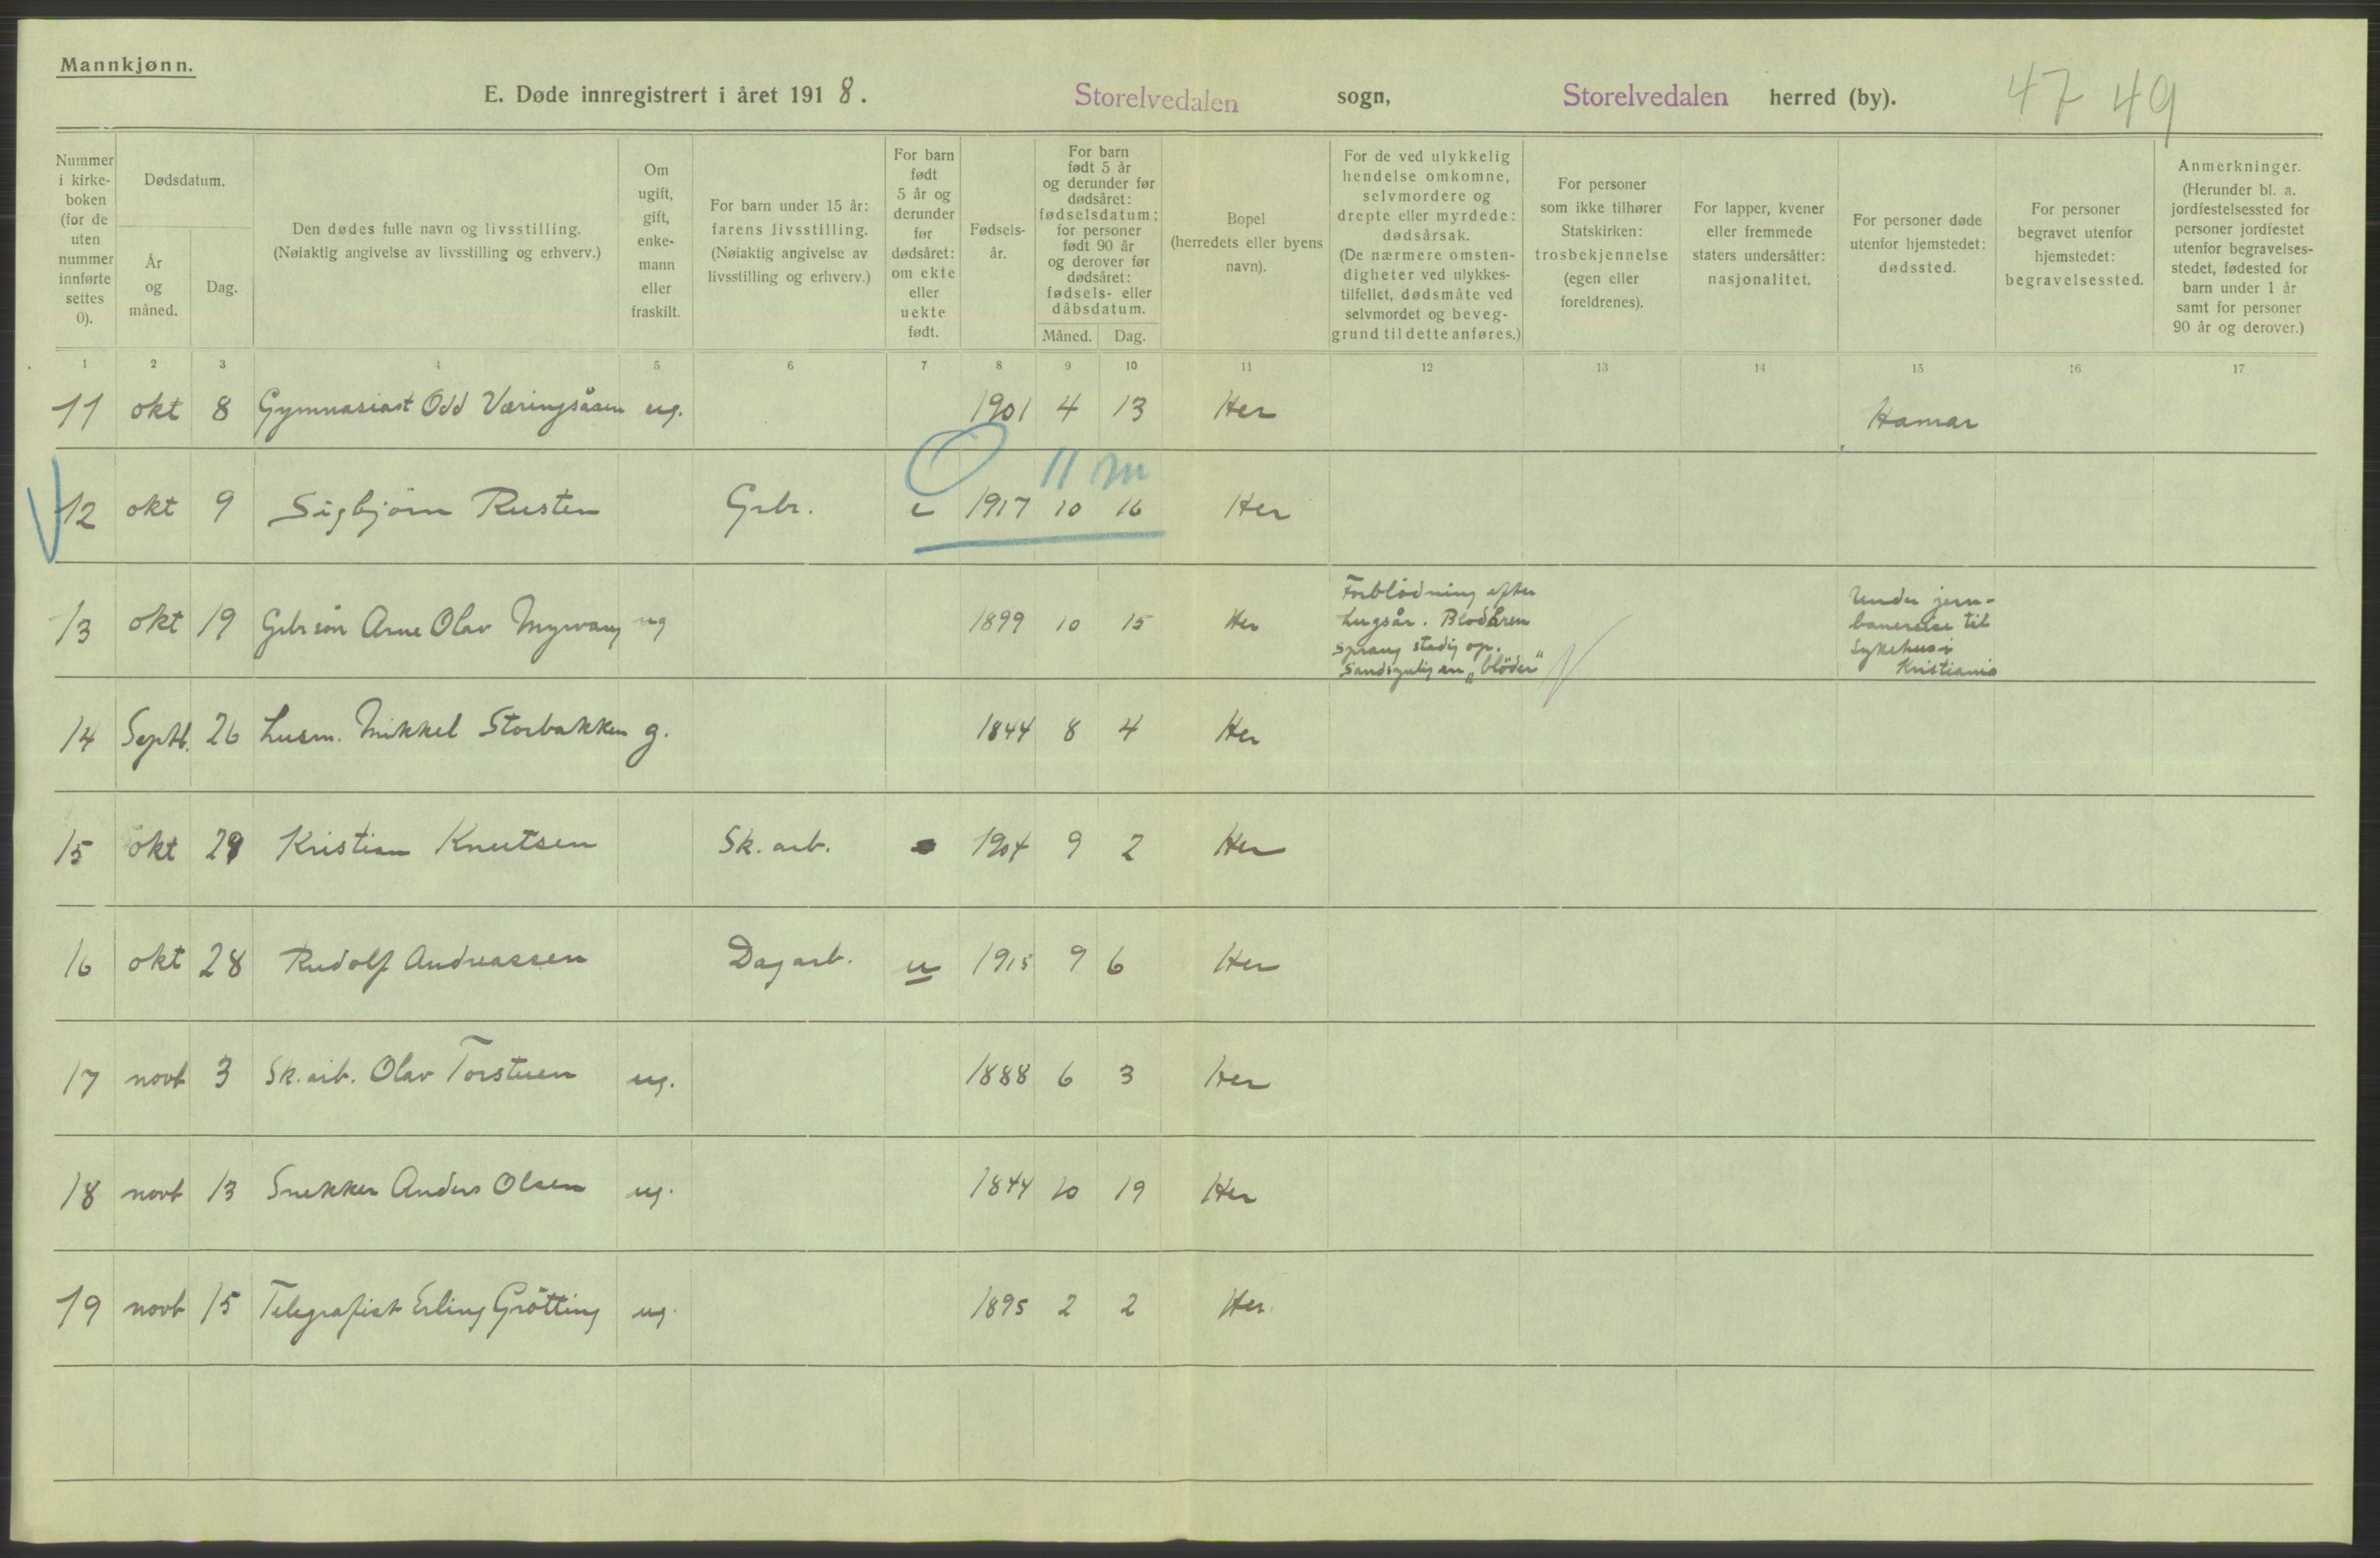 Mannkjønn.
E. Døde innregistrert i året 1918. Storelvedalen sogn, Storelvedalen herred (by). 47 49
Nummer i kirke-boken (for de uten nummer innførte settes 0).
Dødsdatum.
År og måned.
Dag.
Den dødes fulle navn og livsstilling.
(Nøiaktig angivelse av livsstilling og erhverv.)
Om ugift, gift, enke-mann eller fraskilt.
For barn under 15 år: farens livsstilling.
(Nøiaktig angivelse av livsstilling og erhverv.)
For barn født 5 år og derunder før dødsåret: om ekte eller uekte født.
Fødsels-år.
For barn født 5 år og derunder før dødsåret: fødselsdatum; for personer født 90 år og derover før dødsåret: fødsels- eller dåbsdatum.
Måned. Dag.
Bopel (herredets eller byens navn).
For de ved ulykkelig hendelse omkomne, selvmordere og drepte eller myrdede: dødsårsak.
(De nærmere omsten-digheter ved ulykkes-tilfellet, dødsmåte ved selvmordet og beveg-grund til dette anføres.)
For personer som ikke tilhører Statskirken: trosbekjennelse (egen eller foreldrenes).
For lapper, kvener eller fremmede staters undersåtter: nasjonalitet.
For personer døde utenfor hjemstedet: dødssted.
For personer begravet utenfor hjemstedet: begravelsessted.
Anmerkninger.
(Herunder bl. a. jordfestelsessted for personer jordfestet utenfor begravelses-stedet, fødested for barn under 1 år samt for personer 90 år og derover.)
1 2 3 4 5 6 7 8 9 10 11 12 13 14 15 16 17
11 okt 8 Gymnasiast Odd Væringsåsen ug. 1901 4 13 Her Hamar
11 m
12 okt 9 Sigbjörn Rusten Grbr. e 1917 10 16 Her
13 okt 19 Grbr sön Arne Olav Myrvang ug 1899 10 15 Her
Forblödning efter
hugsår. Blodåren
sprang stadig op.
Sandsynlig en „blöder"
Under jern-
banereise til
Sykehus i
Kristiania
14 Septb. 26 Husm. Mikkel Storbakken g. 1844 8 4 Her
15 okt 29 Kristian Knutsen Sk. arb. 1904 9 2 Her
16 okt 28 Rudolf Andreassen Dagarb. u 1915 9 6 Her
17 novb 3 Sk. arb. Olav Torstuen ug. 1888 6 3 Her
18 novb 13 Snekker Anders Olsen ug. 1844 10 19 Her
19 novb 15 Telegrafist Erling Grötting ug. 1895 2 2 Her